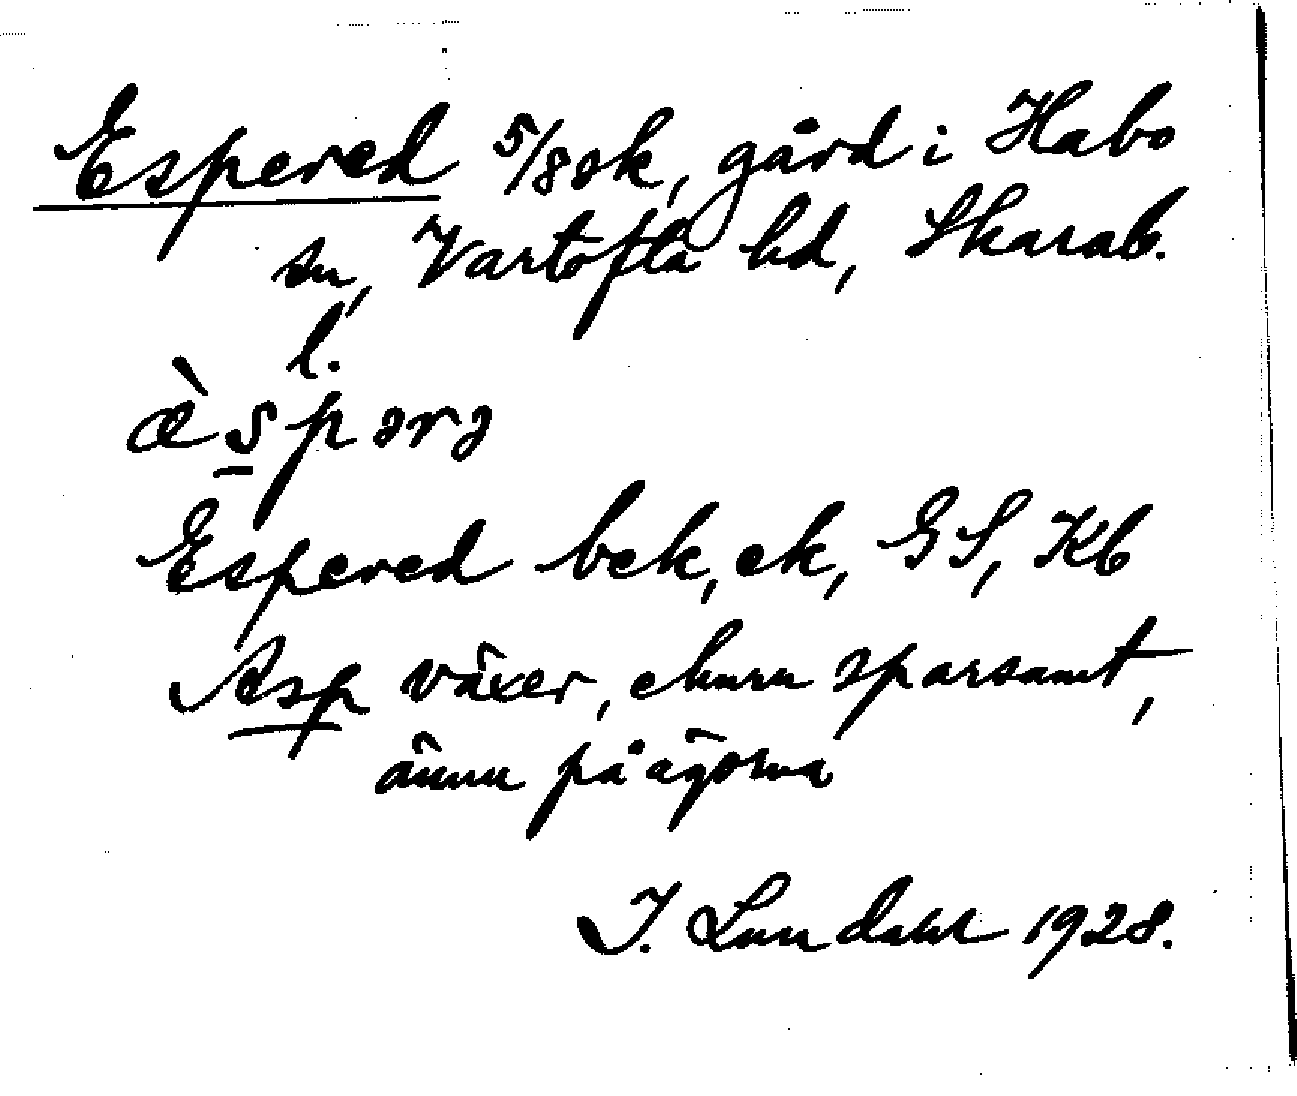 Espered 5/8 ok, gård i Habo
sn, Vartofta hd, Skarab.
l.
æ̀spərə
Espered bek, ek, GS, Kb
Asp växer, ehuru sparsamt,
ännu på ägorna
I. Lundahl 1928.